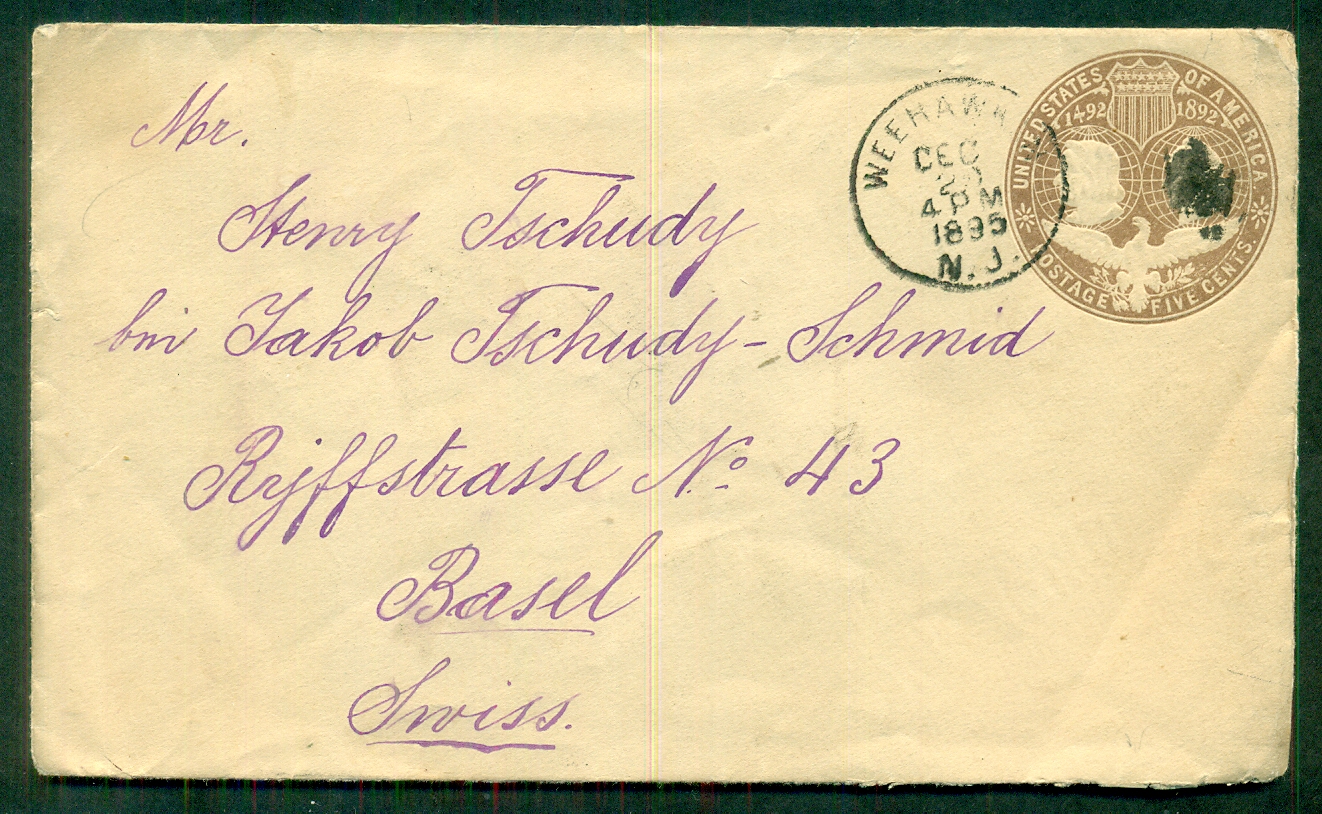 Mr.
Henry Tschudy
bei Jakob Tschudy-Schmid
Ryffstrasse No. 43
Basel
Swiss.
WEEHAWK
DEC
4 PM
1895
N.J.
UNITED STATES OF AMERICA
1492 1892
POSTAGE FIVE CENTS.